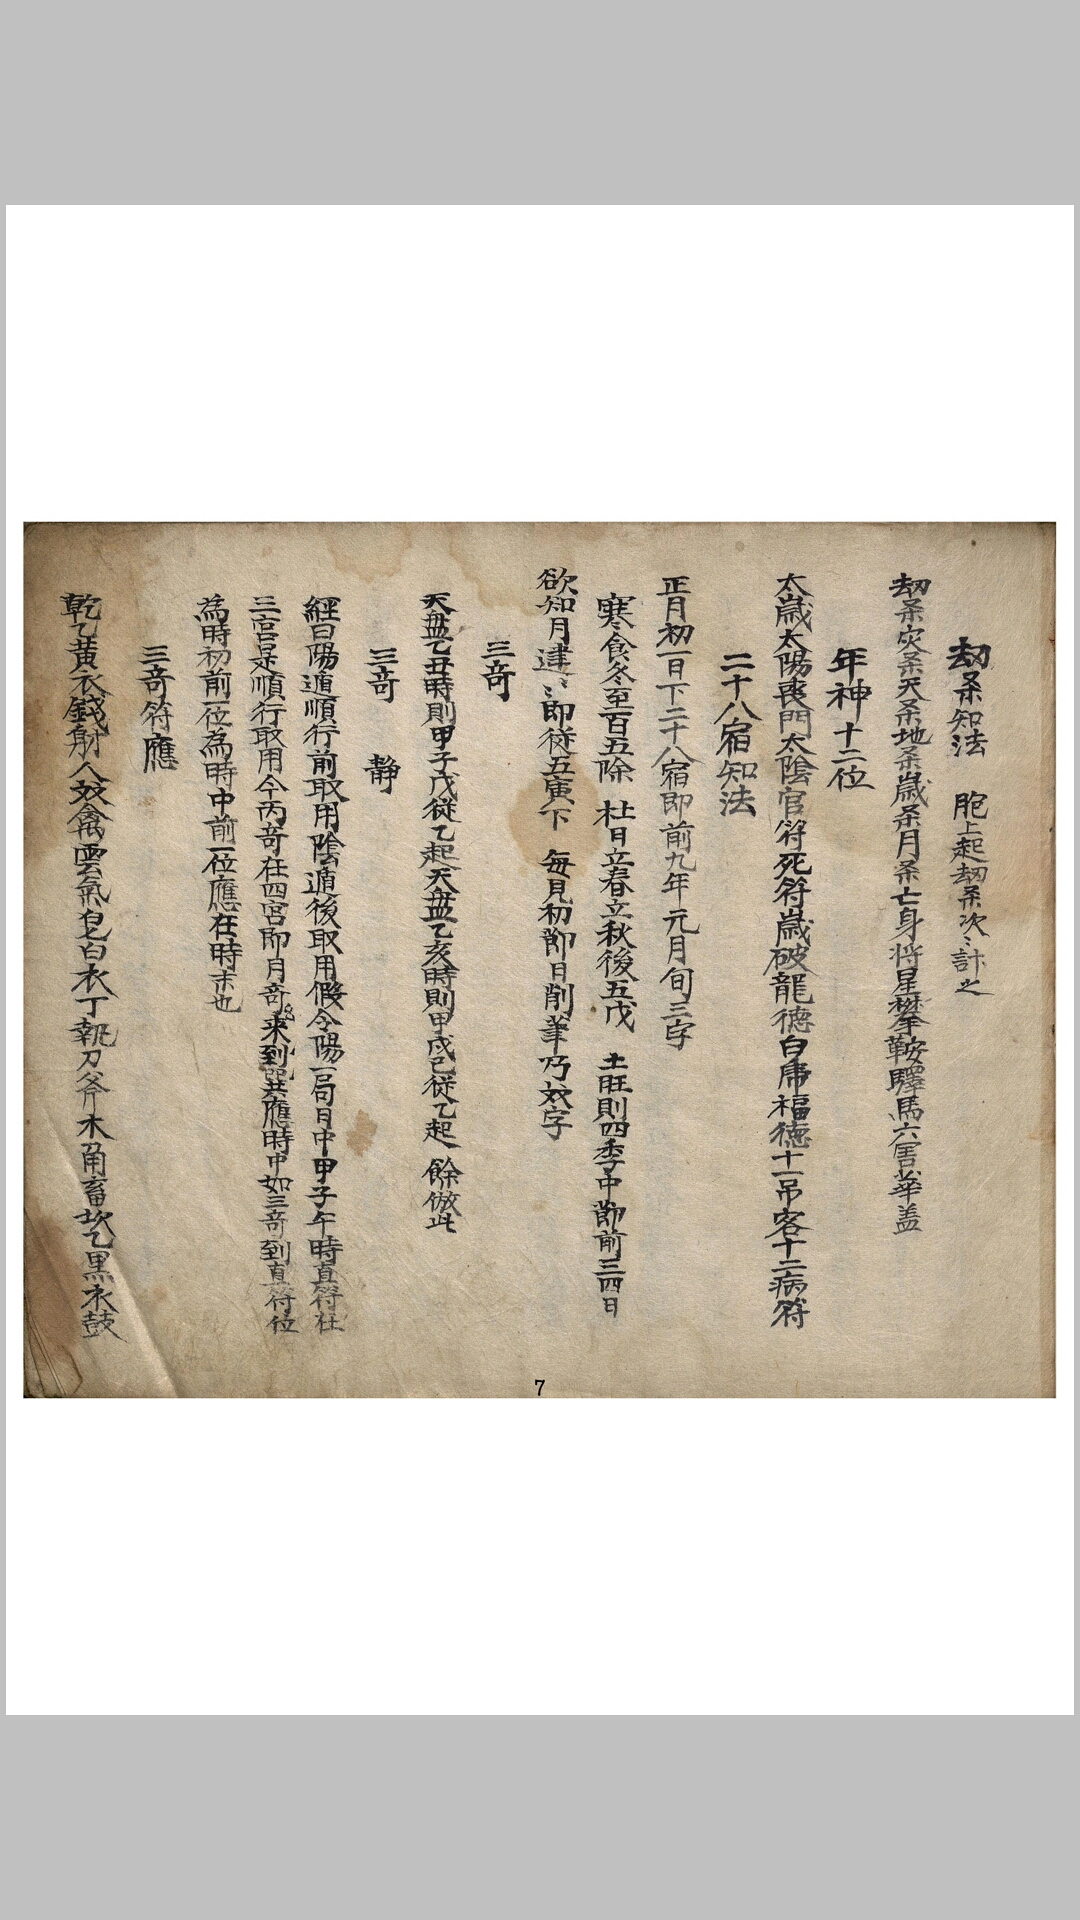 劫杀知法 胞上起劫杀次〻計之
劫杀灾杀天杀地杀歲杀月杀亡身将星攀鞍驛馬六害華盖
年神十二位
太歲太陽喪門太陰官符死符歲破龍德白虎福德十一吊客十二病符
二十八宿知法
正月初一日下二十八宿即前九年元月旬三字
寒食冬至百五除 社日立春立秋後五戊 土旺則四季中節前三四日
欲知月建〻即従五寅下 每見初節日削筆乃效字
三奇
天盤乙丑時則甲子戊従乙起天盤乙亥時則甲戌己従乙起 餘倣此
三奇 静
經曰陽遁順行前取用陰遁後取用假令陽一局日中甲子午時直符在
三宮是順行取用今丙奇在四宮即月奇來到其應時中如三奇到直符位
為時初前一位為時中前一位應在時末也
三奇符應
乾乙黃衣錢射人效禽雲氣皂白衣丁執刀斧木角畜坎乙黒衣鼓
7